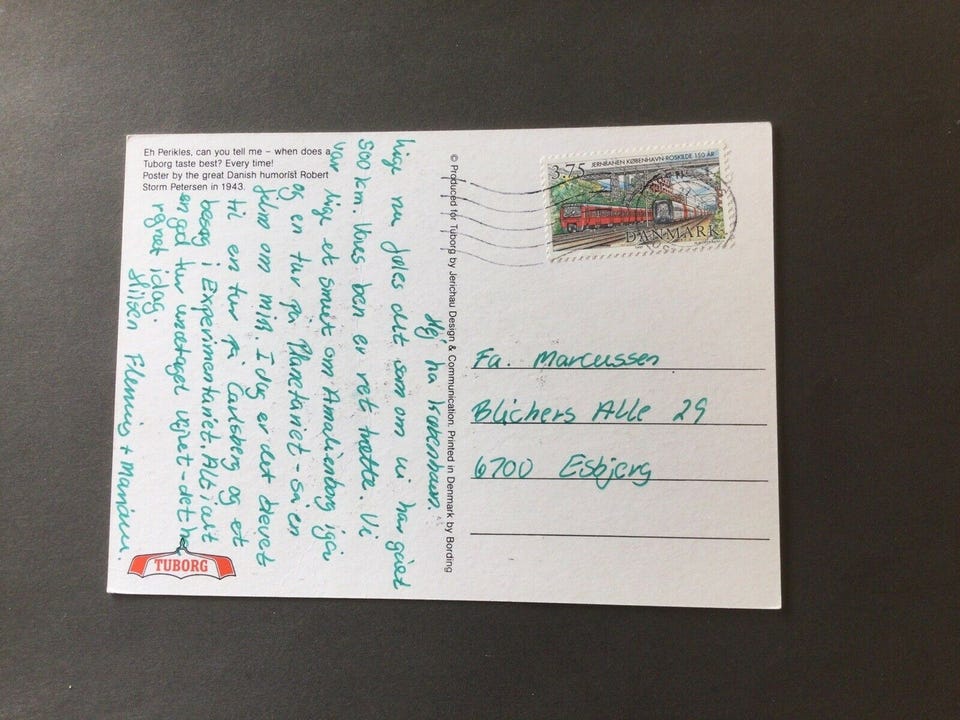 Eh Perikles, can you tell me – when does a
Tuborg taste best? Every time!
Poster by the great Danish humorist Robert
Storm Petersen in 1943.
Hej fra København.
Lige nu føles det som om vi har gået
500 km. Vores ben er ret trætte. Vi
var lige et smut om Amalienborg igår
og en tur på Planetariet - så en
film om Mir. I dag er det blevet
til en tur på Carlsberg og et
besøg i Experimentariet. Alt i alt
en god tur undtaget vejret - det har
regnet idag.
Hilsen Flemming + Mariann.
TUBORG
© Produced for Tuborg by Jerichau Design & Communication. Printed in Denmark by Bording
3.75 JERNBANEN KØBENHAVN-ROSKILDE 150 ÅR
DANMARK
Fa. Marcussen
Blichers Alle 29
6700 Esbjerg